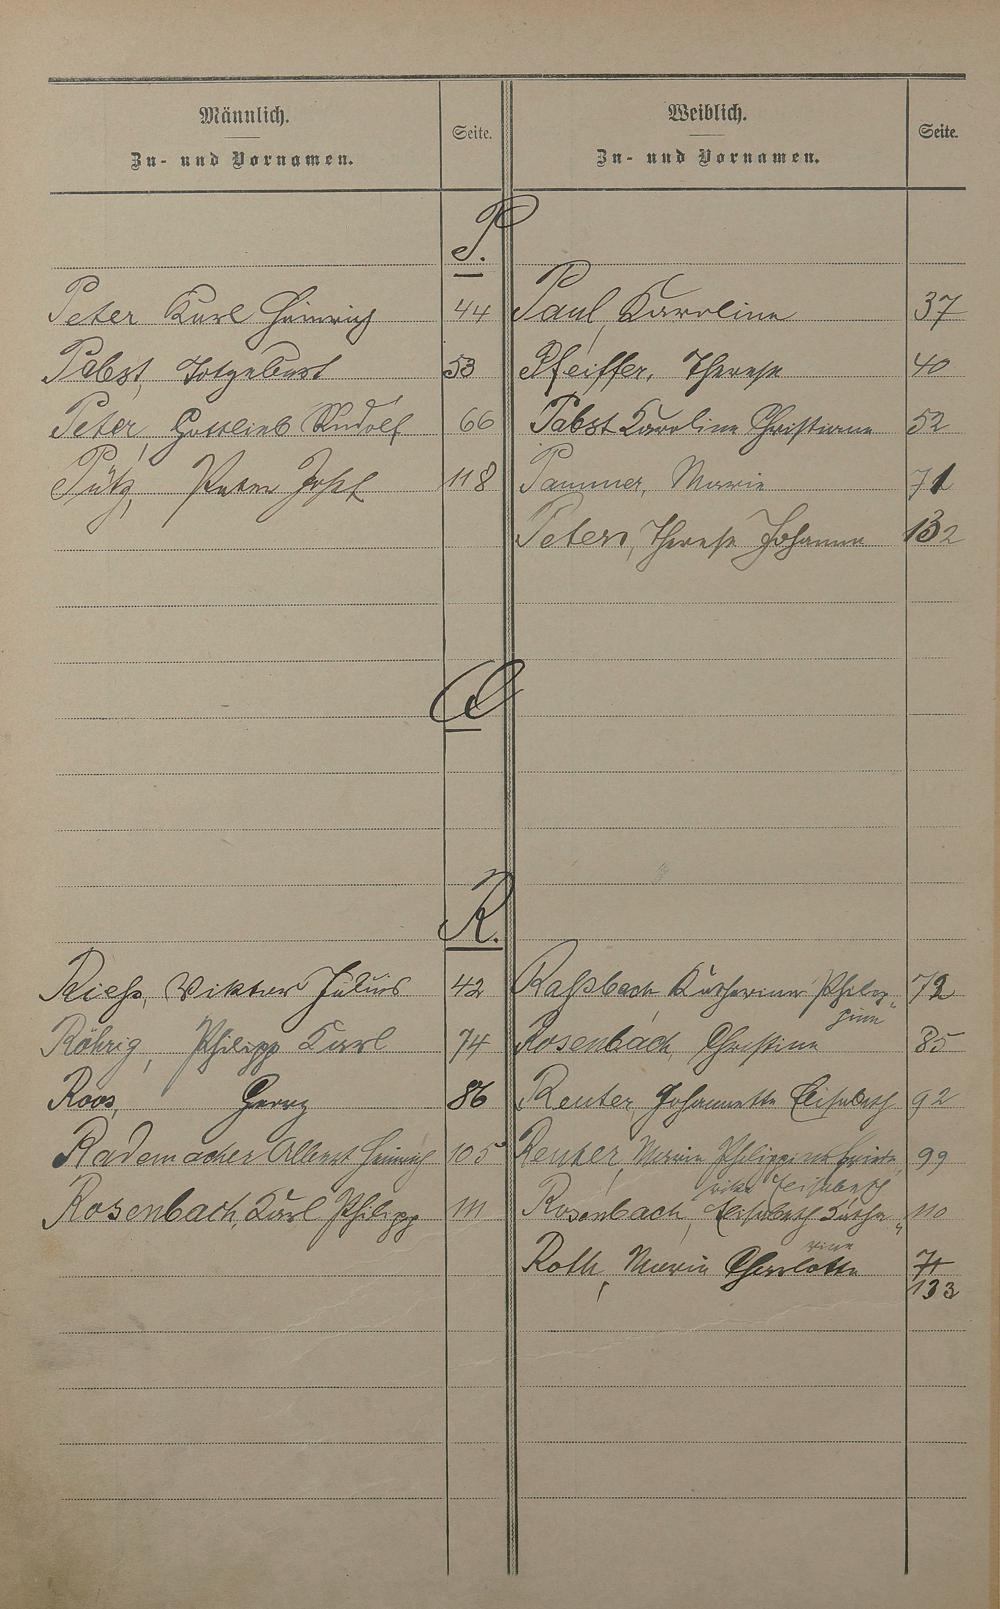 Männlich.
Zu- und Vornamen.
Seite.
Weiblich.
Zu- und Vornamen.
Seite.
P.
Peter Karl Heinrich 44
Paul, Karoline 37
Pabst, Totgeburt 53
Pfeiffer, Therese 40
Peter, Gottlieb Rudolf 66
Pabst Karoline Christiane 52
Pütz, Peter Josef 118
Pammer, Marie 71
Peters, Therese Johanna 132
Q
R.
Rieß, Viktor Julius 42
Raßbach Katharina Philip„ 72
pine
Röhrig, Philipp Karl 74
Rosenbach, Christine 85
Roos, Georg 86
Reuter, Johannette Elisabeth 92
Rademacher Albert Heinrich 105
Reuter, Marie Philippine 99
Elisabeth
Rosenbach, Karl Philipp 111
Rosenbach, Elisabeth Katha„ 110
rine
Roth, Marie Charlotte 71
133